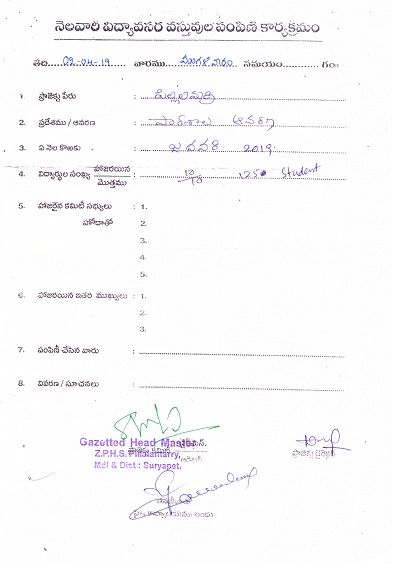 నెలవారి విద్యావసర వస్తువుల పంపిణి కార్యక్రమం
తేది.. 09-04-19 ..... వారము.... మంగళవారం .. సమయం............ గం॥
1. ప్రాజెక్టు పేరు : పిల్లలమర్రి
2. ప్రదేశము / ఆవరణ : పాఠశాల ఆవరణ
3. ఏ నెల కొఱకు : జనవరి 2019
4. విద్యార్థుల సంఖ్య హాజరయిన / మొత్తము : 10/18 1250 Student
5. హాజరైన కమిటీ సభ్యులు : 1.
హోదాతో 2.
3.
4.
5.
6. హాజరయిన ఇతర ముఖ్యులు : 1.
2.
3.
7. పంపిణీ చేసిన వారు :
8. వివరణ / సూచనలు :
Gazetted Head Master
Z.P.H.S. Pillalamarry,
Mdl & Dist : Suryapet.
ప్రాజెక్టు డైరెక్టర్